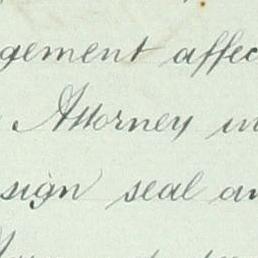 gement affec
Attorney in
sign seal an